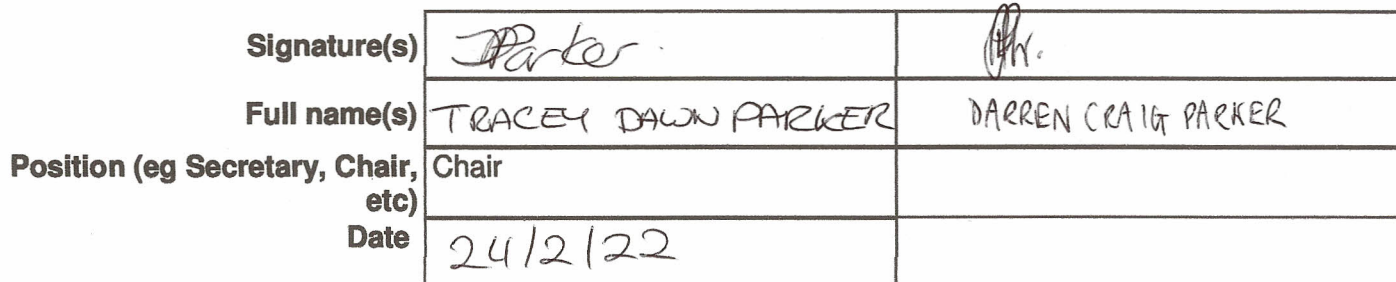 Signature(s) Parker
Full name(s) TRACEY DAWN PARKER DARREN CRAIG PARKER
Position (eg Secretary, Chair, Chair
etc)
Date 24/2/22